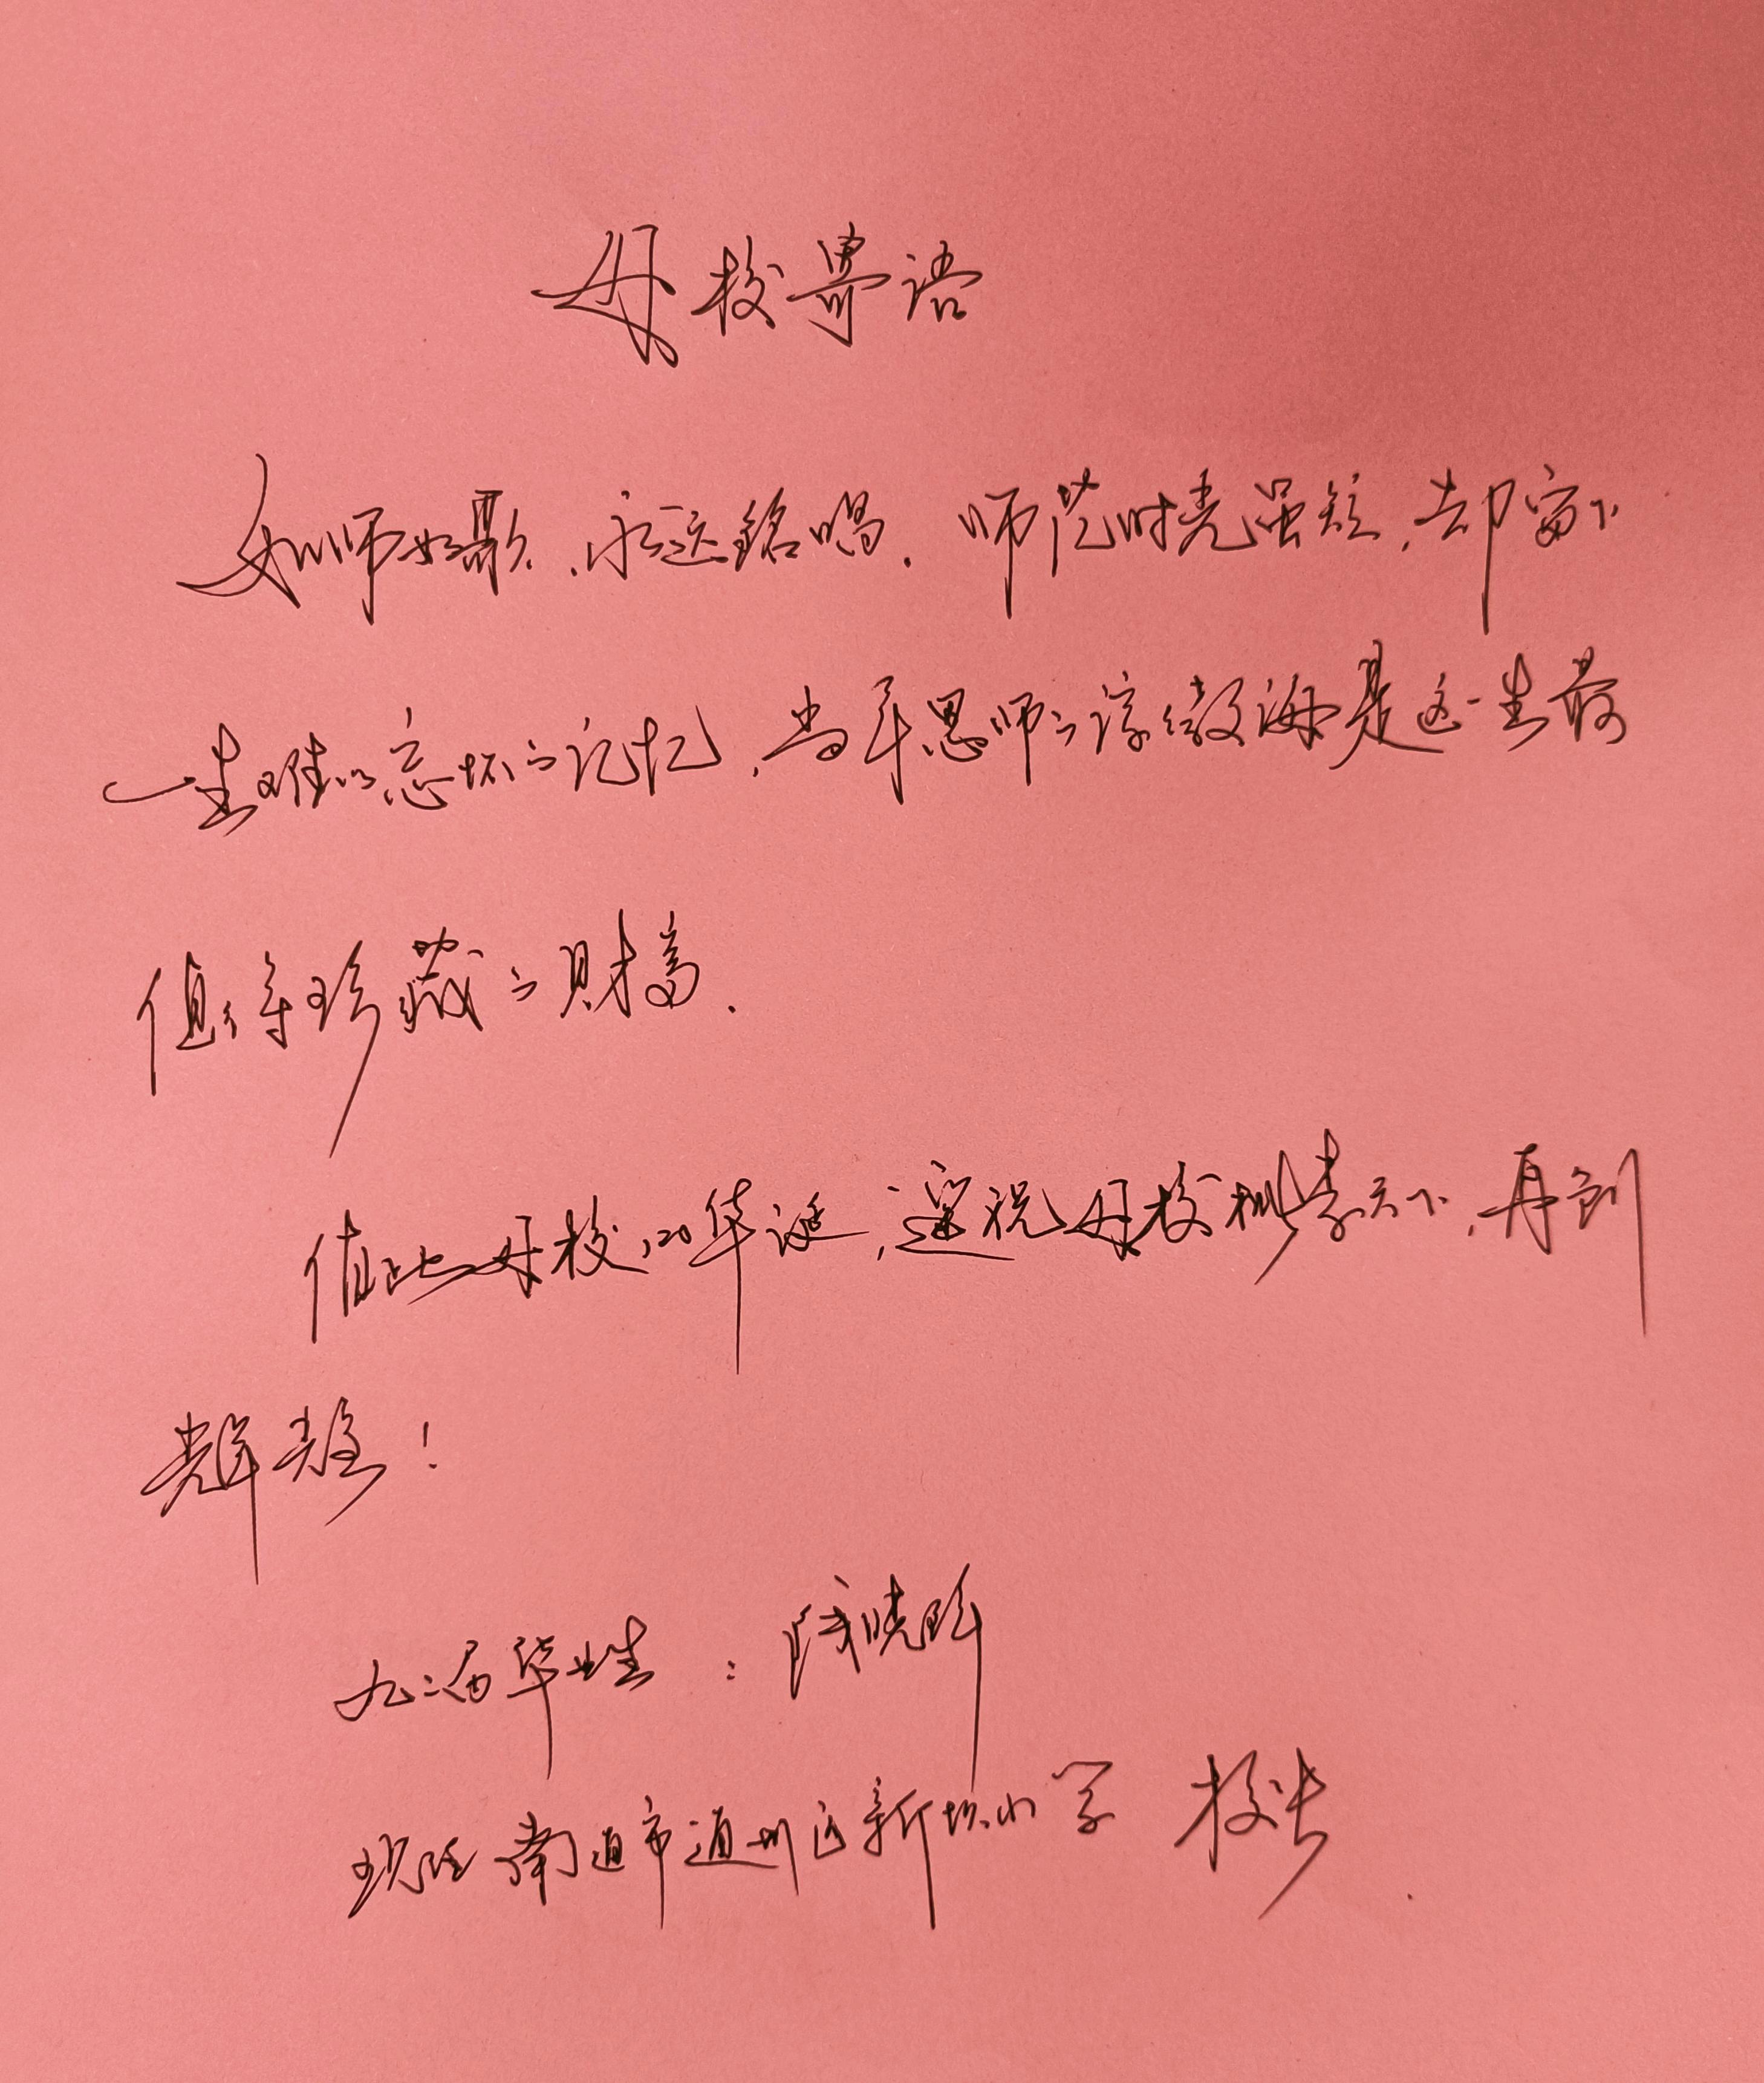 母校寄语
如师如歌,永远铭唱.师范时光虽短,却留下
一生难以忘怀的记忆,当年恩师的谆谆教诲是这一生最
值得珍藏的财富.
值此母校120华诞,遥祝母校桃李天下,再创
辉煌!
九二届毕业生:陈晓
现任南通市通州区新坝小学 校长